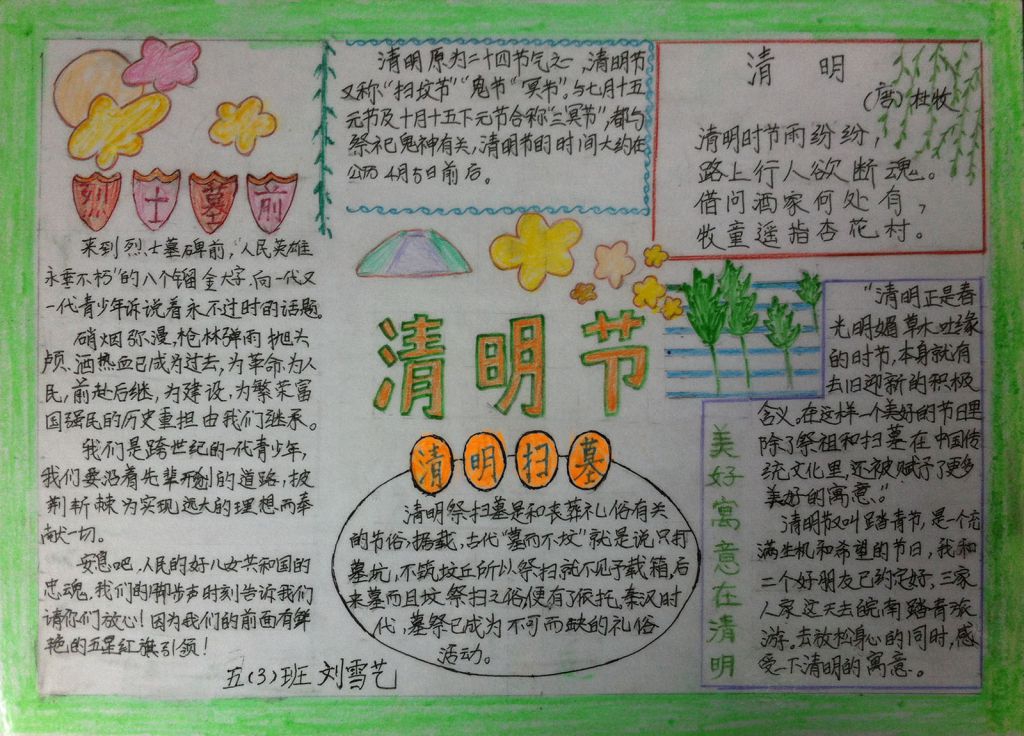 烈士墓前
来到烈士墓碑前，“人民英雄
永垂不朽”的八个镏金大字，向一代又
一代青少年诉说着永不过时的话题。
硝烟弥漫，枪林弹雨，抛头
颅，洒热血已成为过去，为革命，为人
民，前赴后继，为建设，为繁荣富
国强民的历史重担由我们继承。
我们是跨世纪的一代青少年，
我们要沿着先辈开创的道路，披
荆斩棘为实现远大的理想而奉
献一切。
安息吧，人民的好儿女共和国的
忠魂，我们的脚步声时刻告诉我们
请你们放心！因为我们的前面有鲜
艳的五星红旗引领！
五(3)班 刘雪艺
清明原为二十四节气之一，清明节
又称“扫坟节”“鬼节”“冥节”。与七月十五
元节及十月十五下元节合称“三冥节”，都与
祭祀鬼神有关，清明节的时间大约在
公历4月5日前后。
清明
(唐)杜牧
清明时节雨纷纷，
路上行人欲断魂。
借问酒家何处有，
牧童遥指杏花村。
清明节
清明扫墓
清明祭扫墓是和丧葬礼俗有关
的节俗，据载，古代“墓而不坟”就是说只打
墓坑，不筑坟丘所以祭扫就不见于载箱，后
来墓而且坟祭扫之俗，便有了依托，秦汉时
代，墓祭已成为不可而缺的礼俗
活动。
美好寓意在清明
“清明正是春
光明媚草木吐绿
的时节，本身就有
去旧迎新的积极
含义。在这样一个美好的节日里
除了祭祖和扫墓在中国传
统文化里，还被赋予了更多
美好的寓意。”
清明节又叫踏青节，是一个充
满生机和希望的节日，我和
二个好朋友已约定好，三家
人家这天去皖南踏青旅
游。去放松身心的同时，感
受一下清明的寓意。